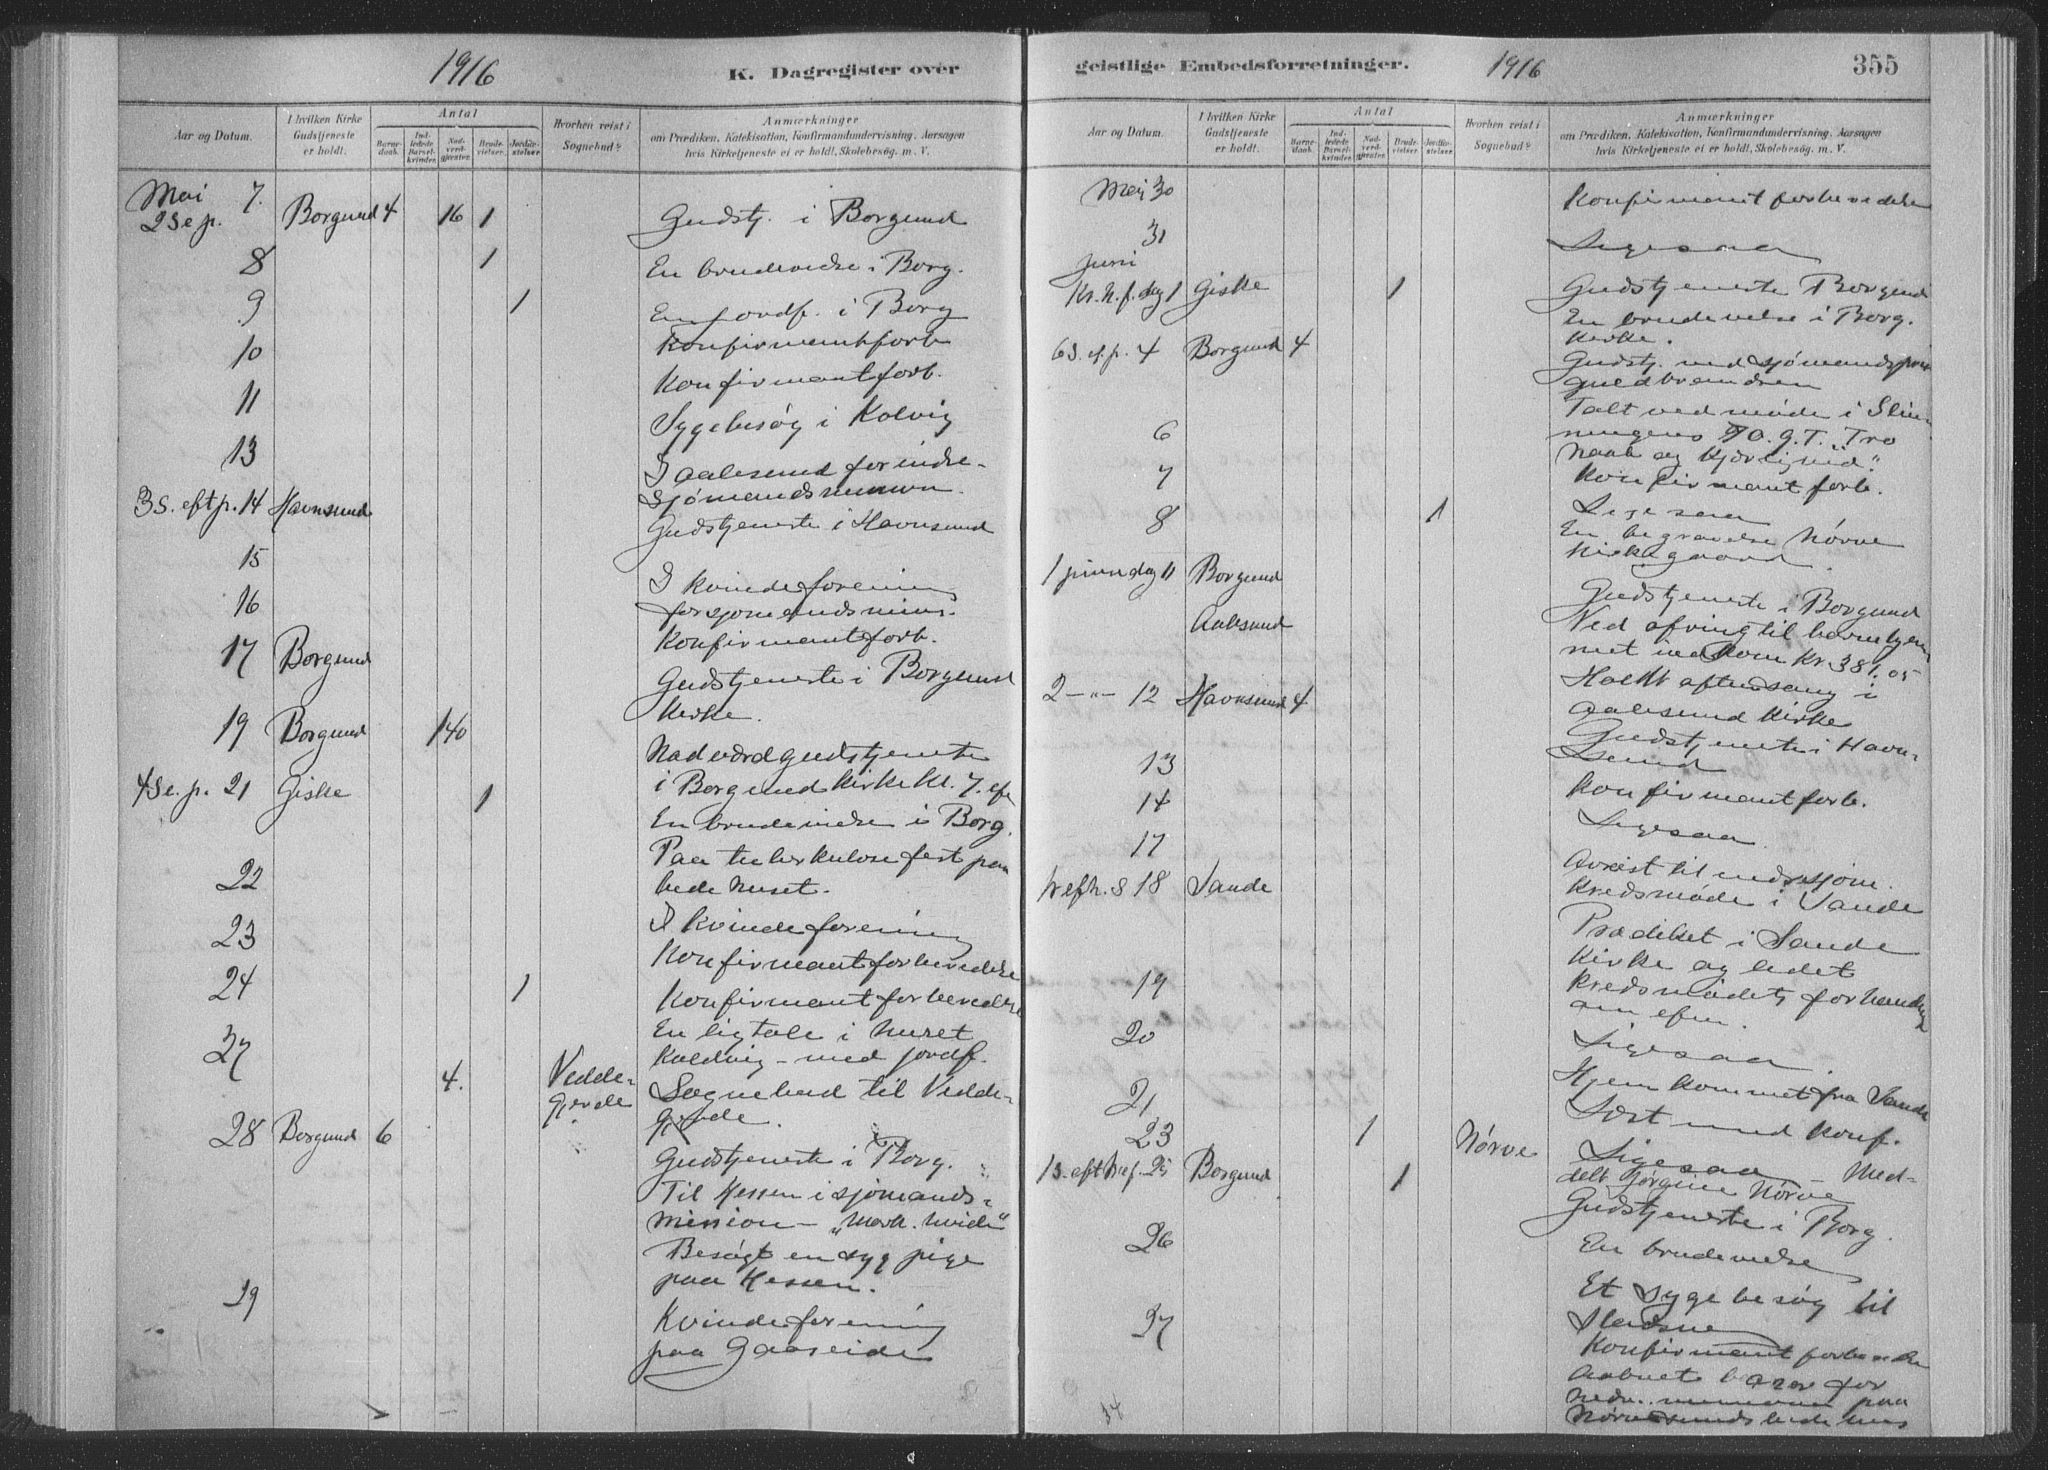 1916
K. Dagregister over
Aar og Datum.
I hvilken Kirke Gudstjeneste er holdt.
Antal
Barne-daab.
Ind-ledede Barsel-kvinder.
Nad-verd-gjester.
Brude-vielser.
Jordfæ-stelser.
Hvorhen reist i Sognebud?
Anmærkninger
om Prædiken, Katekisation, Konfirmandundervisning, Aarsagen
hvis Kirketjeneste ei er holdt, Skolebesøg. m. V.
Mai 7.
2 S e p. Borgund 4 16 1 Gudstj. i Borgund
8 1 En brudevielse i Borg.
9 1 En jordf. i Borg
Konfirmantforb
10 Konfirmantforb.
11 Sygebesøg i Kolvig
13 I Aalesund for indre-
sjømandsmission.
3 S. eft p. 14 Havnsund Gudstjeneste i Havnsund
15 I kvindeforening
for sjømandsmiss.
16 Konfirmantforb.
17 Borgund Gudstjeneste i Borgund
Kirke.
19 Borgund 140 Nadværdgudstjeneste
i Borgund Kirke kl. 7. ef
4 S e. p. 21 Giske 1 En brudevielse i Borg.
Paa tuberkulosefest paa
bedehuset.
22 I kvindeforening
23 Konfirmantforberedelse
24 1 Konfirmantforberedelse
En ligtale i huset
Koldvig - med jordf.
27 4. Vedde-
gjerde Sognebud til Vedde-
gjerde.
28 Borgund 6 Gudstjeneste i Borg.
Til Hessen i sjømands-
mission - „Mark. hvide"
Besøgt en syg pige
paa Hessen.
29 Kvindeforening
paa Gaaseide
geistlige Embedsforretninger.
1916
355
Aar og Datum.
I hvilken Kirke Gudstjeneste er holdt.
Antal
Barne-daab.
Ind-ledede Barsel-kvinder.
Nad-verd-gjester.
Brude-vielser.
Jordfæ-stelser.
Hvorhen reist i Sognebud?
Anmærkninger
om Prædiken, Katekisation, Konfirmandundervisning, Aarsagen
hvis Kirketjeneste ei er holdt, Skolebesøg. m. V.
Mai 30 Konfirmantforberedelse
31 Ligesaa
Juni
Kr. h. f. dag 1 Giske 1 Gudstjeneste Borgund
En brudevielse i Borg.
Kirke.
6 S. ef. p. 4 Borgund 4 Gudstj. ved sjømandspræst
Guldbrandsen
Talt ved møde i Slin-
ningens I O. G. T. „Tro
haab og kjærlighed".
6 Konfirmantforb.
7 Ligesaa
8 1 En begravelse Nørve
Kirkegaard.
1 pinsedag 11 Borgund Gudstjeneste i Borgund
Aalesund Ved ofring til barnehjem
met indkom Kr. 381.05
Holdt aftensang i
Aalesund Kirke
2 -„- 12 Havnsund 4 Gudstjeneste i Havn-
sund
13 Konfirmantforb.
14 Ligesaa
17 Avreist til indresjøm.
kredsmøde i Sande
tr efh. S 18 Sande Prædiket i Sande
Kirke og ledet
kredsmødets forhandling
om efter.
19 Ligesaa.
20 Hjemkommet fra Sande
21 Læst med konf.
23 1 Nørve Ligesaa - Med-
delt Jørgine Nørve
1 S. eft tref. 25 Borgund 1 Gudstjeneste i Borg.
En brudevielse
26 Et sygebesøg til
27 Konfirmantforberedelse
Aabnet basar for
indre. mission paa
Nørvesunds bedehus